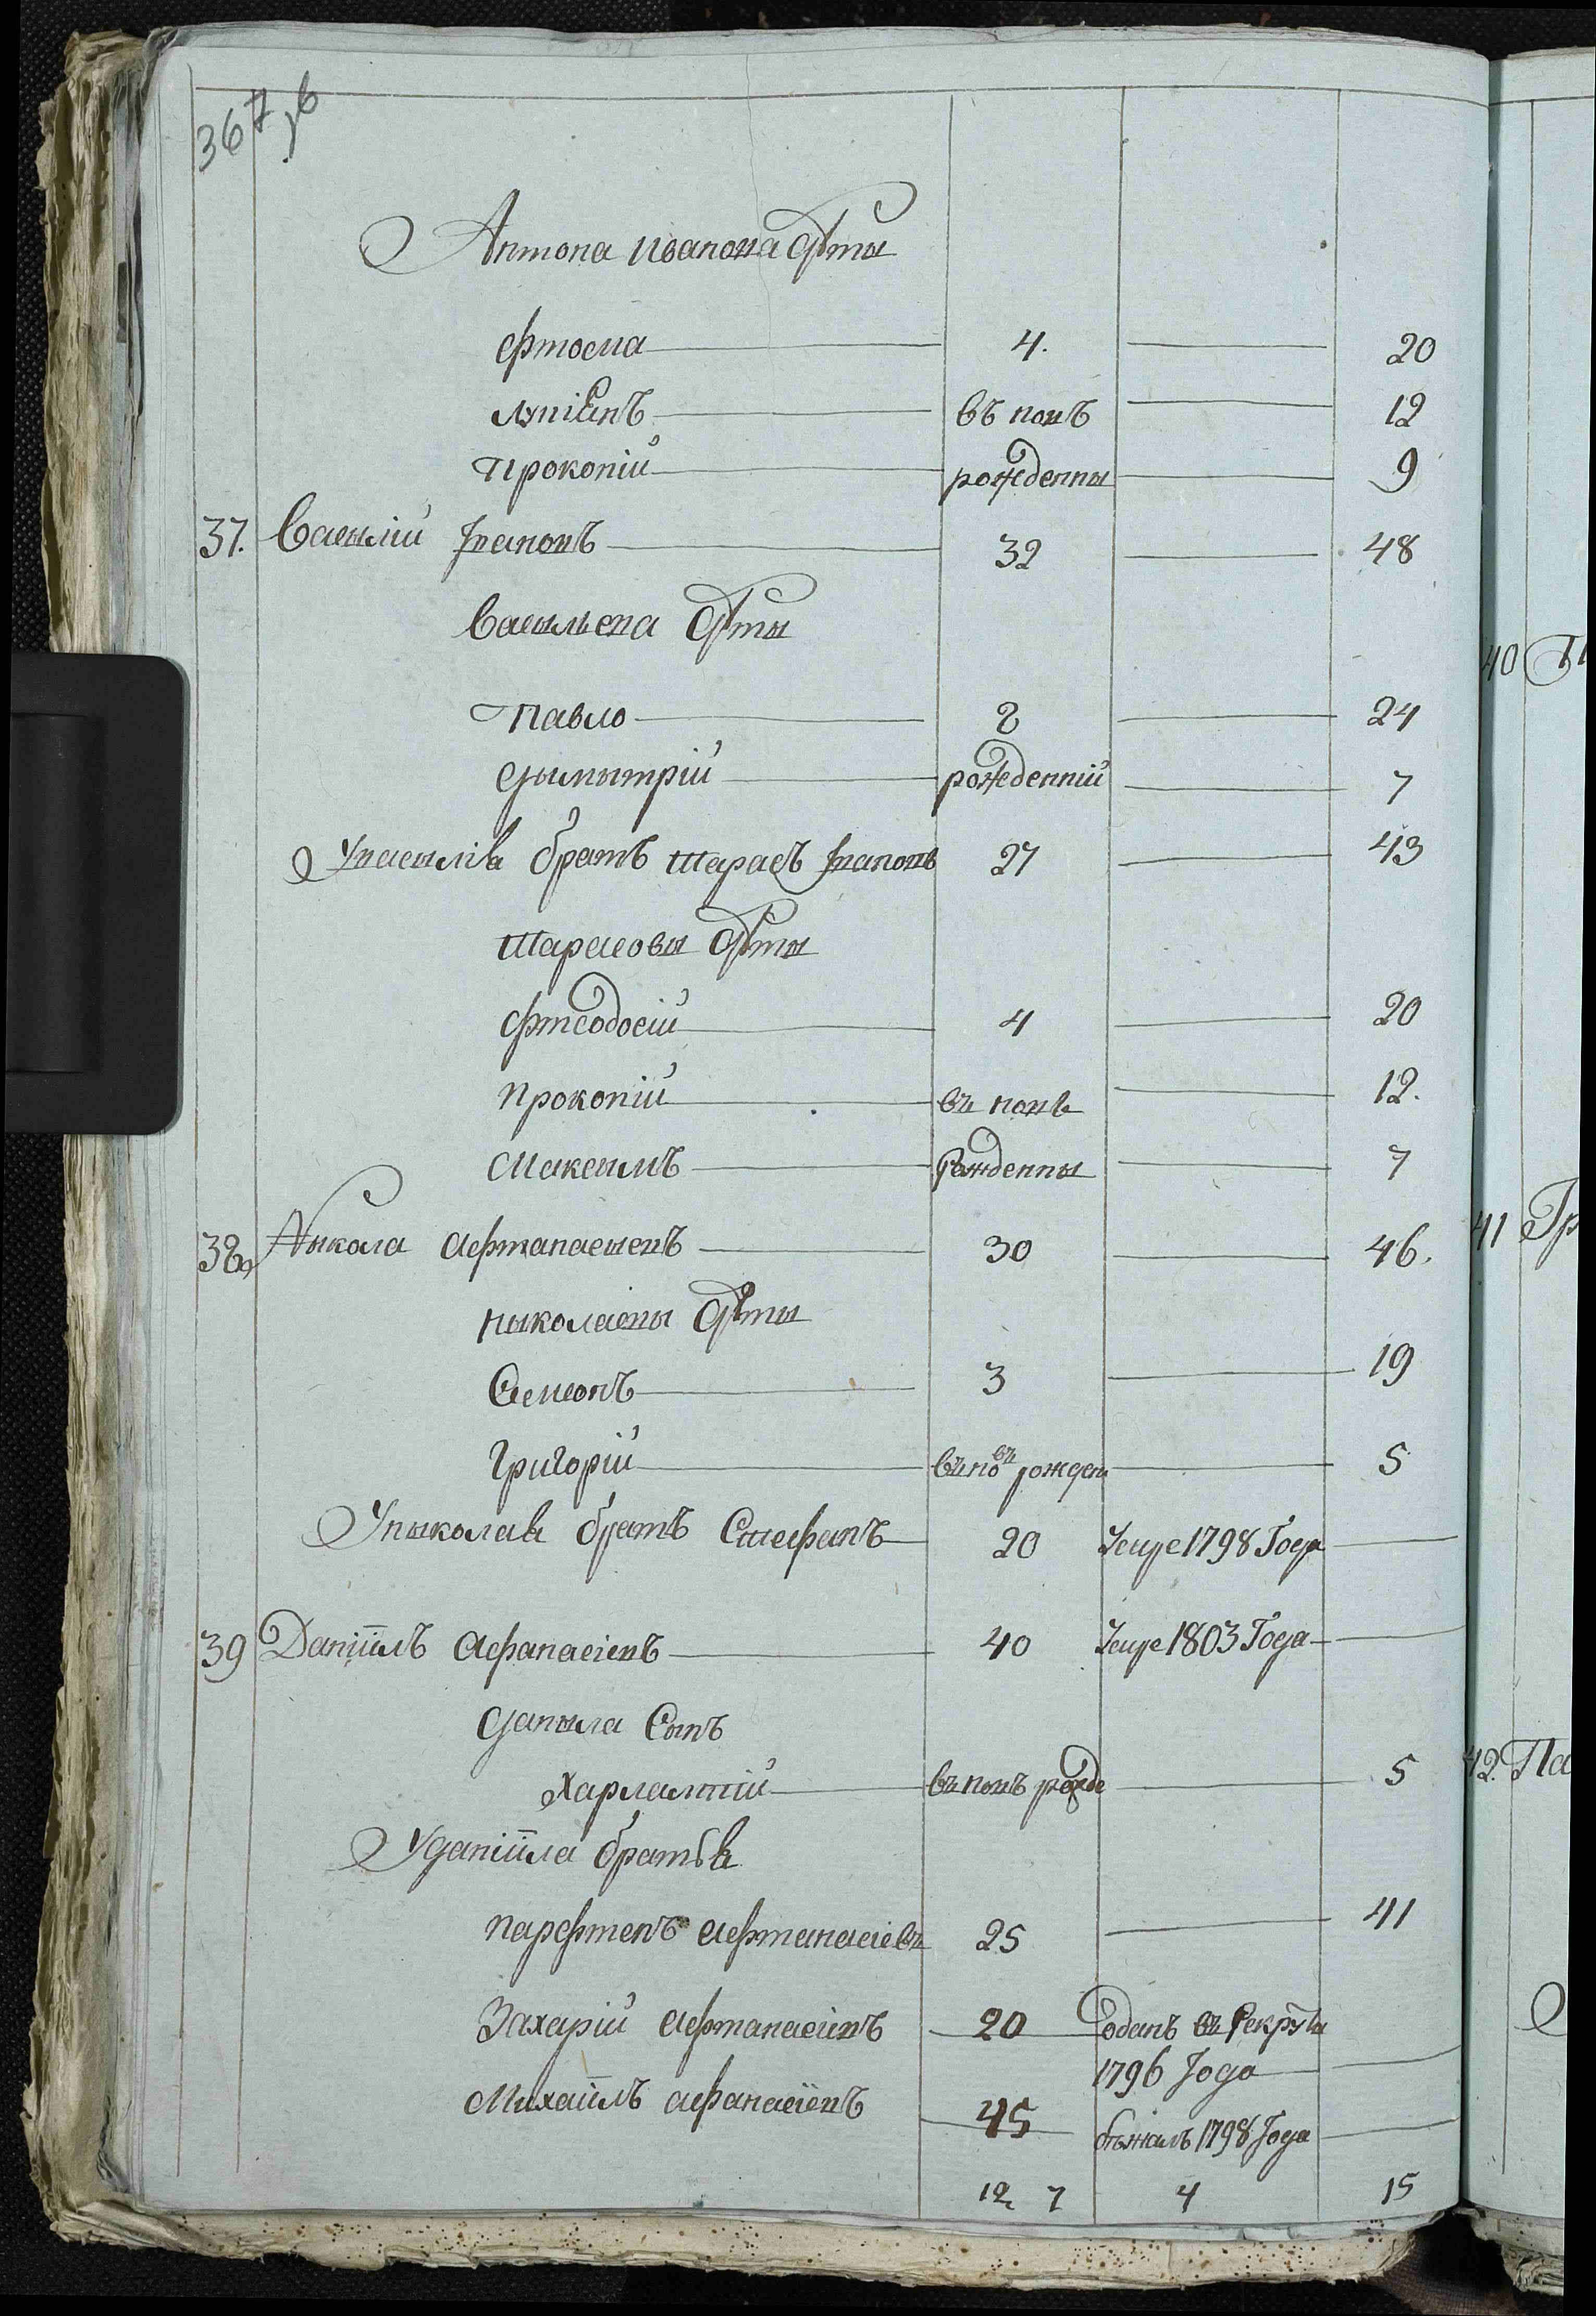 367,б
Антона Иванова дѣти
Фтома 4. 20
въ новъ 12
Прокопій рожденны 9
37. Василій Івановъ 32 48
Васильева дѣти
Павло 8 24
Дымытрій рожденній 7
Увасылія братъ Тарасъ Івановъ 27 43
Тарасовы дѣти
Фтеодосій 4 20
Прокопій въ новь 12.
Максымъ Рожденны 7
38, Ныкола Афтанасьевъ 30 46.
Ныколаевы дѣти
Семіонъ 3 19
Григорій въновь рожден 5
Уныколая братъ Стефанъ 20 Умре 1798 Года
39 Даніилъ Афанасіевъ 40 Умре 1803 Года
Даныла Сынъ
Харлампій въновъ рожде 5
Уданіила братья
Парфтенъ Афтанасіевъ 25 41
Захарій Афтанасіевъ 20 Одданъ въ Рекруты
1796 Года
Михаилъ Афанасіевъ 45
бѣжалъ 1798 Года
12, 7 4 15
40
41 Гр
42. Па